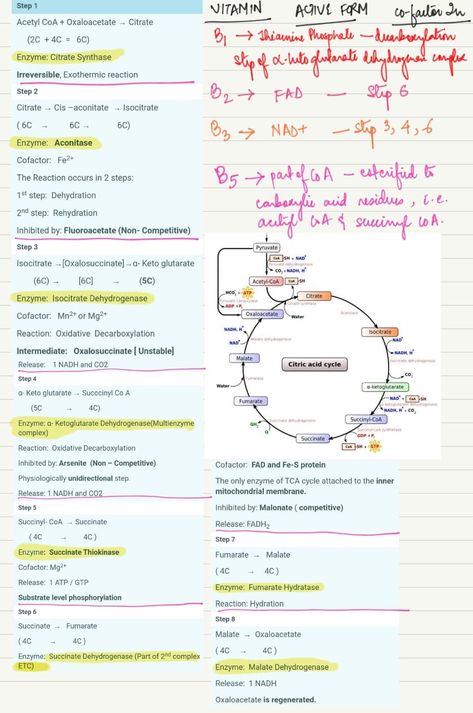 Step 1
Acetyl CoA + Oxaloacetate → Citrate
(2C + 4C = 6C)
Enzyme: Citrate Synthase
Irreversible, Exothermic reaction
Step 2
Citrate → Cis –aconitate → Isocitrate
( 6C → 6C → 6C)
Enzyme: Aconitase
Cofactor: Fe²⁺
The Reaction occurs in 2 steps:
1ˢᵗ step: Dehydration
2ⁿᵈ step: Rehydration
Inhibited by: Fluoroacetate (Non- Competitive)
Step 3
Isocitrate →[Oxalosuccinate]→α- Keto glutarate
(6C) → [6C] → (5C)
Enzyme: Isocitrate Dehydrogenase
Cofactor: Mn²⁺ or Mg²⁺
Reaction: Oxidative Decarboxylation
Intermediate: Oxalosuccinate [ Unstable]
Release: 1 NADH and CO2
Step 4
α- Keto glutarate → Succinyl Co A
(5C → 4C)
Enzyme: α- Ketoglutarate Dehydrogenase(Multienzyme
complex)
Reaction: Oxidative Decarboxylation
Inhibited by: Arsenite (Non – Competitive)
Physiologically unidirectional step.
Release: 1 NADH and CO2
Step 5
Succinyl- CoA → Succinate
( 4C → 4C )
Enzyme: Succinate Thiokinase
Cofactor: Mg²⁺
Release: 1 ATP / GTP
Substrate level phosphorylation
Step 6
Succinate → Fumarate
( 4C → 4C )
Enzyme: Succinate Dehydrogenase (Part of 2ⁿᵈ complex
ETC)
VITAMIN ACTIVE FORM co-factor In
B₁ → Thiamine Phosphate – decarboxylation
step of α-ketoglutarate dehydrogenase complex
B₂ → FAD — Step 6
B₃ → NAD+ — Step 3, 4, 6
B5 → part of CoA – esterified to
carboxylic acid residues, i.e.
acetyl CoA & succinyl CoA.
Pyruvate
CoA-SH + NAD⁺
Pyruvate dehydrogenase
CO₂ + NADH, H⁺
Acetyl-CoA
CoA-SH
HCO₃⁻ + ATP
Pyruvate carboxylase
ADP + Pᵢ
Citrate
Oxaloacetate
Water
Aconitase
NADH, H⁺
NAD⁺
Malate dehydrogenase
Isocitrate
NAD⁺
Isocitrate dehydrogenase
NADH, H⁺
CO₂
Malate
Citric acid cycle
Water
Fumarase
α-ketoglutarate
NAD⁺ + CoA-SH
α-ketoglutarate dehydrogenase
NADH, H⁺ + CO₂
Fumarate
Succinyl-CoA
QH₂
Q
Succinate dehydrogenase
Succinyl-CoA synthetase
GDP + Pᵢ
Succinate
CoA-SH + GTP
Cofactor: FAD and Fe-S protein
The only enzyme of TCA cycle attached to the inner
mitochondrial membrane.
Inhibited by: Malonate ( competitive)
Release: FADH₂
Step 7
Fumarate → Malate
( 4C → 4C )
Enzyme: Fumarate Hydratase
Reaction: Hydration
Step 8
Malate → Oxaloacetate
( 4C → 4C )
Enzyme: Malate Dehydrogenase
Release: 1 NADH
Oxaloacetate is regenerated.